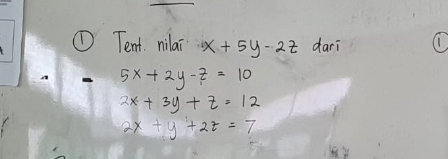 ① Tent. nilai x + 5y - 2z dari
5x + 2y - z = 10
2x + 3y + z = 12
2x + y + 2z = 7